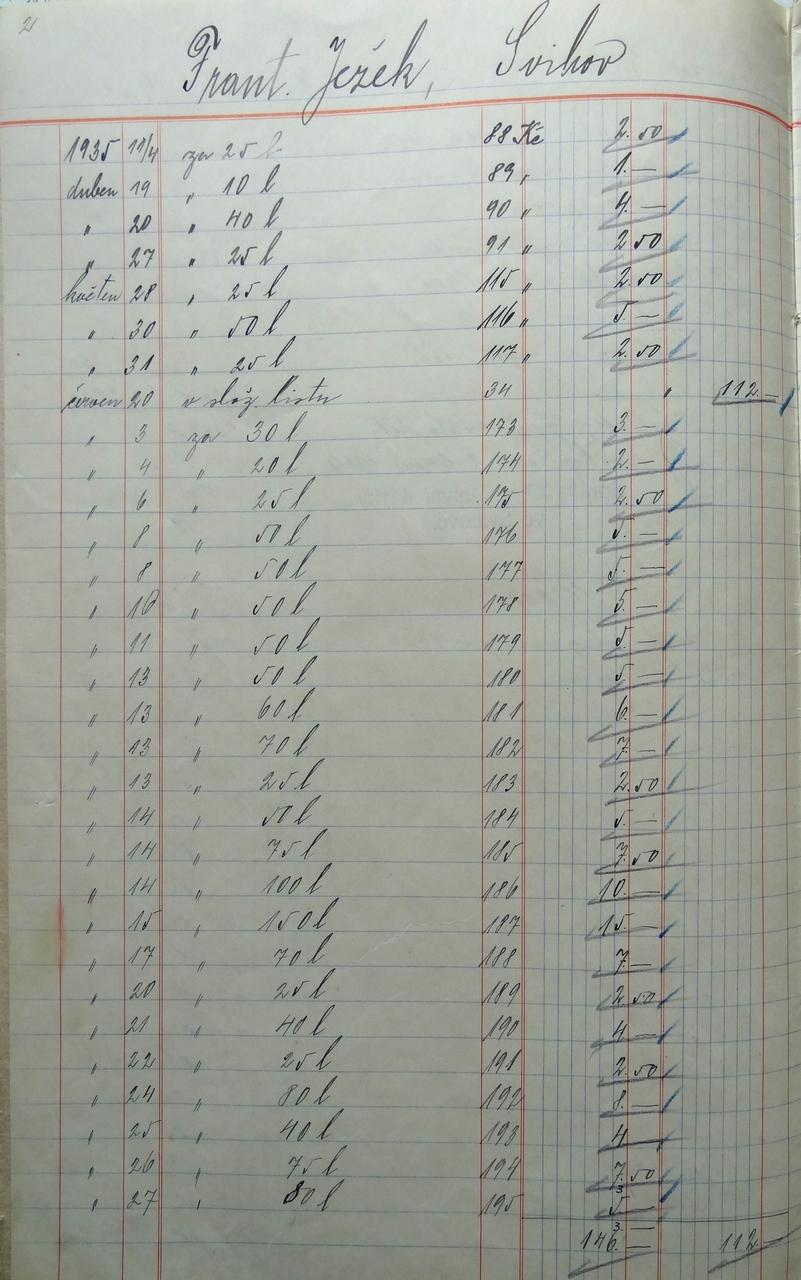 2
Frant. Ježék, Svihov
1935 17/4 za 25 l 88 Kč 2.50
duben 19 " 10 l 89 " 1.—
" 20 " 40 l 90 " 4.—
" 27 " 25 l 91 " 2.50
květen 28 " 25 l 115 " 2.50
" 30 " 50 l 116 " 5.—
" 31 " 25 l 117 " 2.50
červen 20 v slož. listu 34 " 112.—
" 3 za 30 l 173 3.—
" 4 " 20 l 174 2.—
" 6 " 25 l 175 2.50
" 8 " 50 l 176 5.—
" 8 " 50 l 177 5.—
" 10 " 50 l 178 5.—
" 11 " 50 l 179 5.—
" 13 " 50 l 180 5.—
" 13 " 60 l 181 6.—
" 13 " 70 l 182 7.—
" 13 " 25 l 183 2.50
" 14 " 50 l 184 5.—
" 14 " 75 l 185 7.50
" 14 " 100 l 186 10.—
" 15 " 150 l 187 15.—
" 17 " 70 l 188 7.—
" 20 " 25 l 189 2.50
" 21 " 40 l 190 4.—
" 22 " 25 l 191 2.50
" 24 " 80 l 192 8.—
" 25 " 40 l 193 4.—
" 26 " 75 l 194 7.50
" 27 " 80 l 195 5.—
146.— 112.—